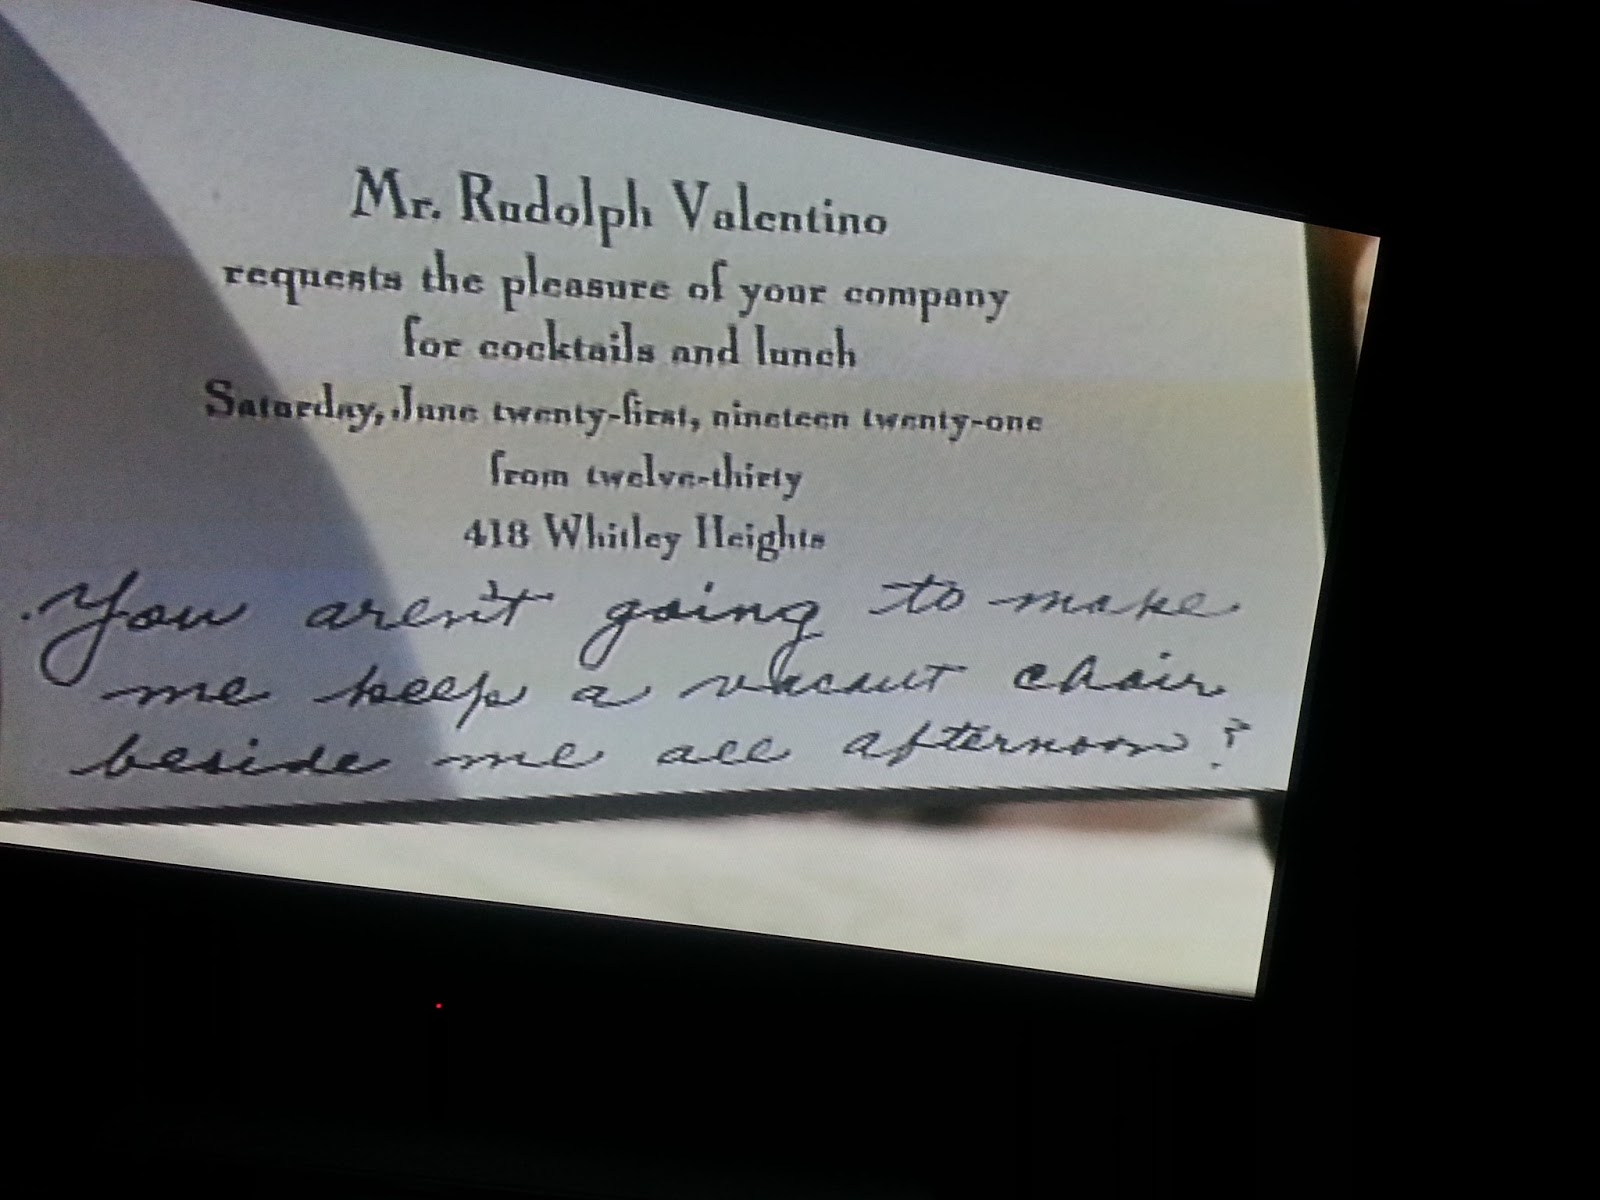 Mr. Rudolph Valentino
requests the pleasure of your company
for cocktails and lunch
Saturday, June twenty-first, nineteen twenty-one
from twelve-thirty
418 Whitley Heights
You aren't going to make
me keep a vacant chair
beside me all afternoon?